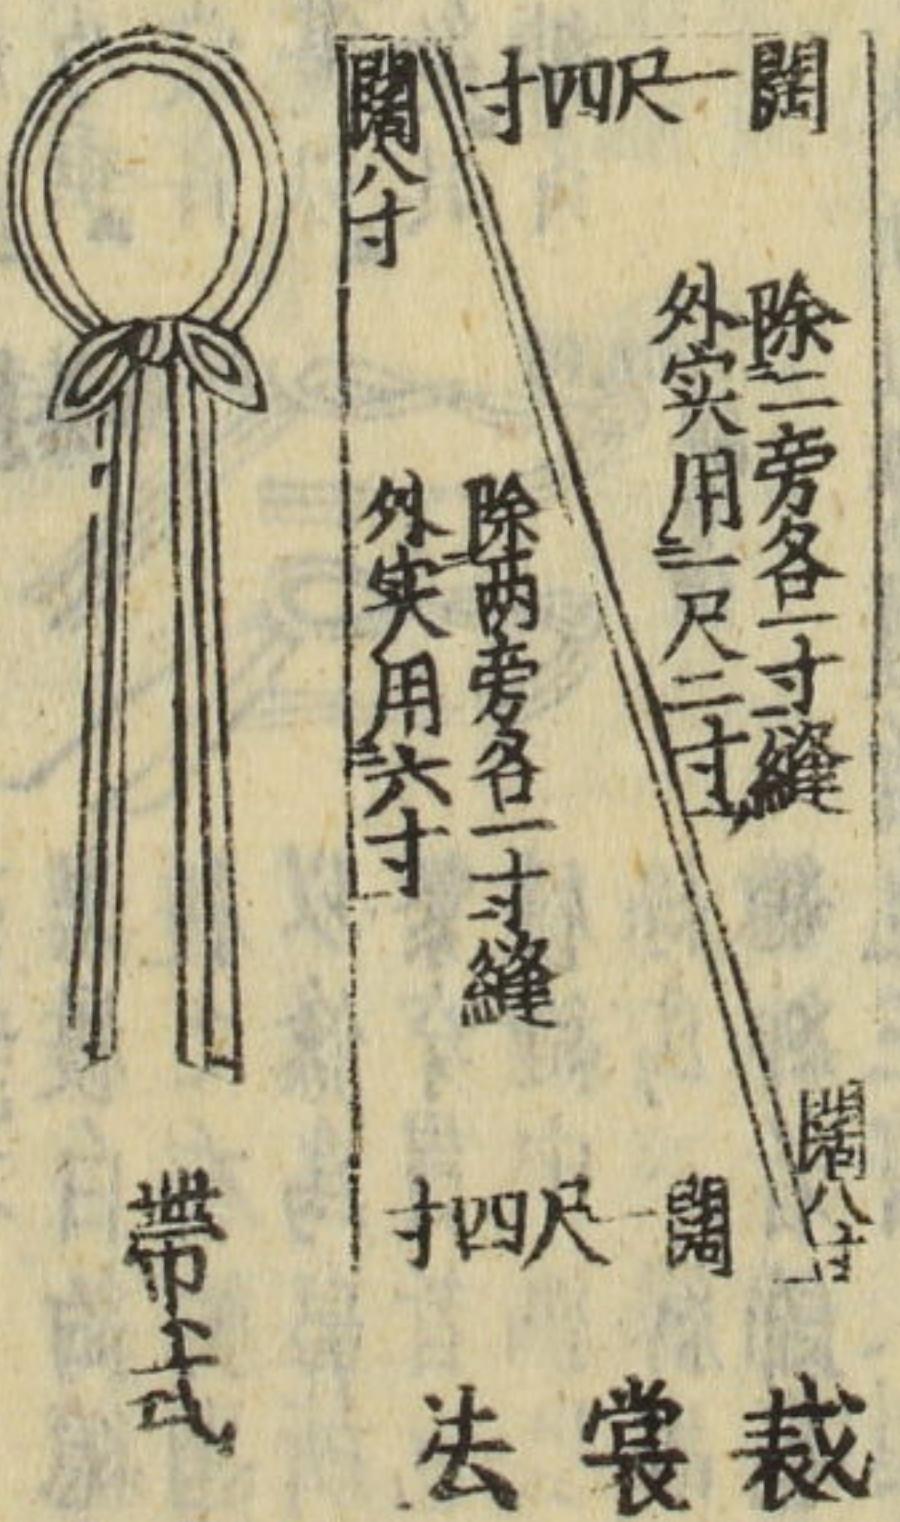 闊一尺四寸
闊八寸
除二旁各一寸縫
外实用一尺二寸
除两旁各一寸縫
外实用六寸
闊八寸
闊一尺四寸
裁裳法
帶式